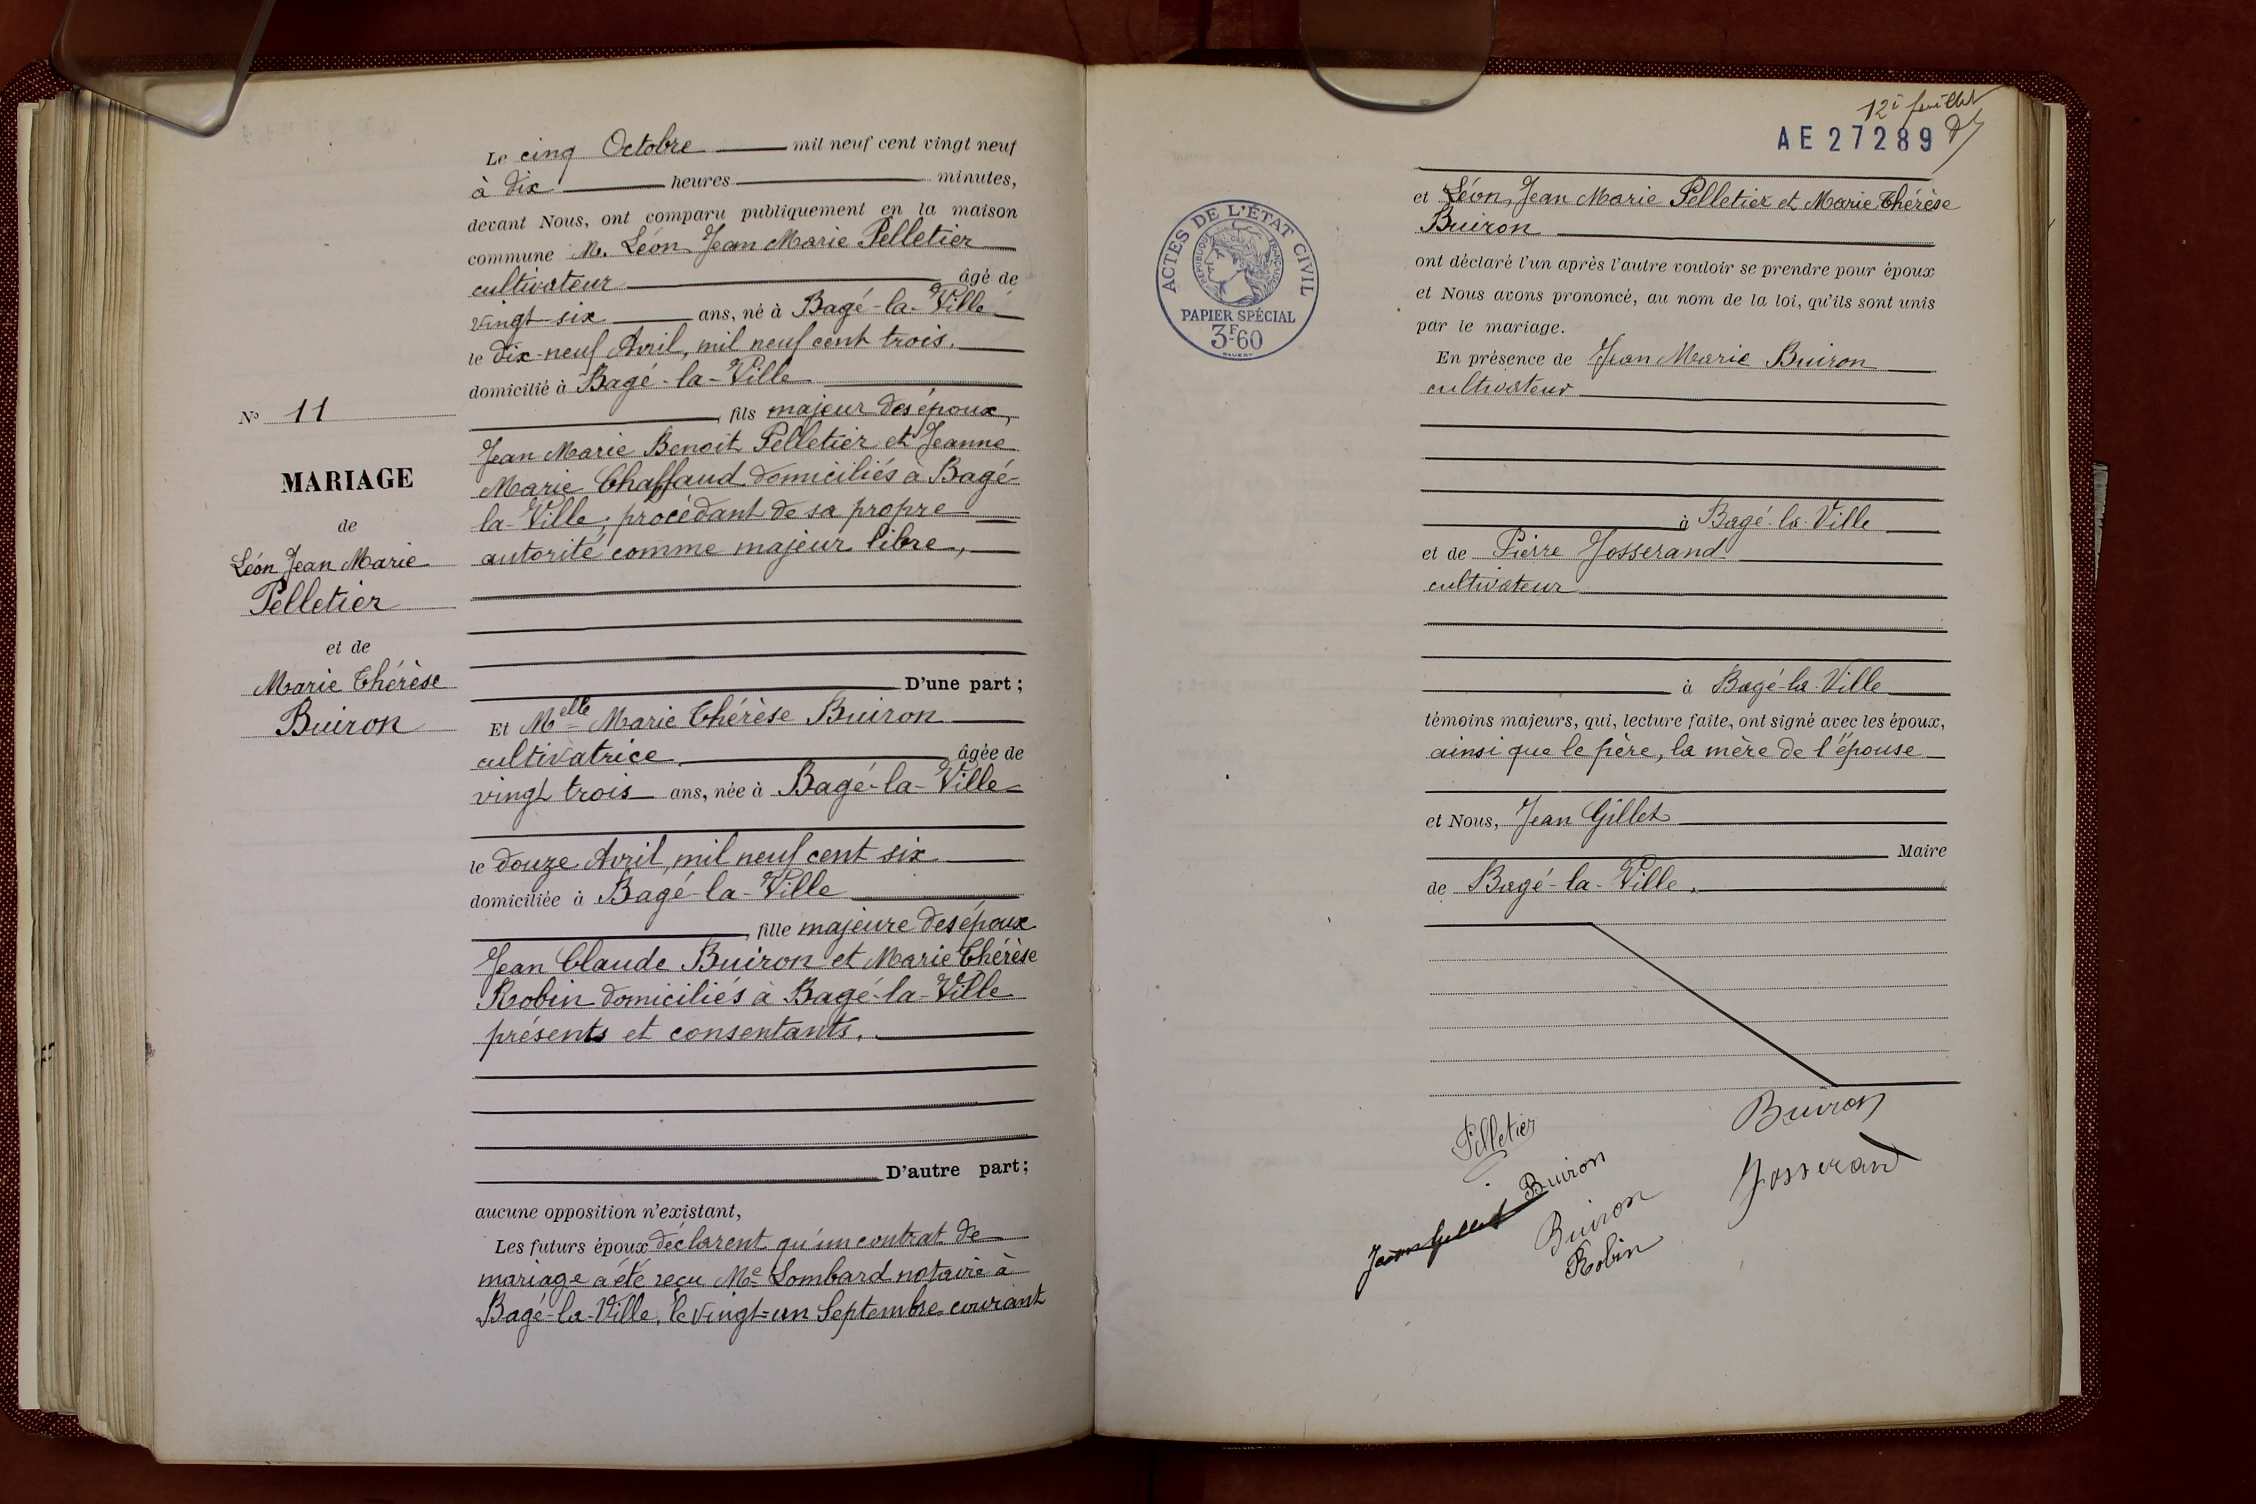 Le cinq Octobre mil neuf cent vingt neuf
à dix heures minutes,
devant Nous, ont comparu publiquement en la maison
commune M. Léon Jean Marie Pelletier
cultivateur âgé de
vingt-six ans, né à Bagé-la-Ville
le dix-neuf Avril, mil neuf cent trois.
domicilié à Bagé-la-Ville
, fils majeur des époux,
Jean Marie Benoit Pelletier et Jeanne
Marie Chaffaud domiciliés à Bagé-
la-Ville; procédant de sa propre
autorité comme majeur libre,
D'une part;
No 11
MARIAGE
de
Léon Jean Marie
Pelletier
et de
Marie Thérèse
Buiron
Et Melle Marie Thérèse Buiron
cultivatrice âgée de
vingt trois ans, née à Bagé-la-Ville
le douze Avril, mil neuf cent six
domiciliée à Bagé-la-Ville
, fille majeure des époux
Jean Claude Buiron et Marie Thérèse
Robin domiciliés à Bagé-la-Ville
présents et consentants.
D'autre part;
aucune opposition n'existant,
Les futurs époux déclarent qu'un contrat de
mariage a été reçu Me Lombard notaire à
Bagé-la-Ville, le vingt-un Septembre courant
12e feuillet
AE 27289
ACTES DE L'ÉTAT CIVIL
RÉPUBLIQUE FRANÇAISE
PAPIER SPÉCIAL
3F60
et Léon Jean Marie Pelletier et Marie Thérèse
Buiron
ont déclaré l'un après l'autre vouloir se prendre pour époux
et Nous avons prononcé, au nom de la loi, qu'ils sont unis
par le mariage.
En présence de Jean Marie Buiron
cultivateur
à Bagé-la-Ville
et de Pierre Josserand
cultivateur
à Bagé-la-Ville
témoins majeurs, qui, lecture faite, ont signé avec les époux,
ainsi que le père, la mère de l'épouse
et Nous, Jean Gillet
Maire
de Bagé-la-Ville.
Pelletier
Buiron
Buiron
Josserand
Jean Gillet
Buiron
Robin